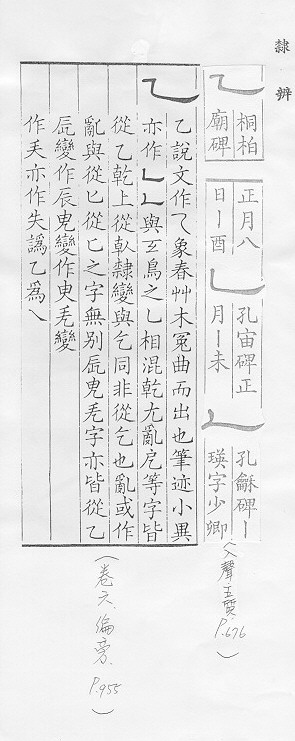 隸辨
乙
桐柏
廟碑
正月八
日丨酉
乚
孔宙碑正
月丨未
乚
孔龢碑丨
瑛字少卿
乙
乙說文作乁象春艸木冤曲而出也筆迹小異
亦作乚乚與玄鳥之乚相混乾尤亂戹等字皆
從乙乾上從倝隸變與乞同非從乞也亂或作
亂與從匕從亡之字無別字亦皆從乙
變作辰變作曳變
作亦作失譌乙為乀
（入聲五質P.676）
（卷六、偏旁、P.955）